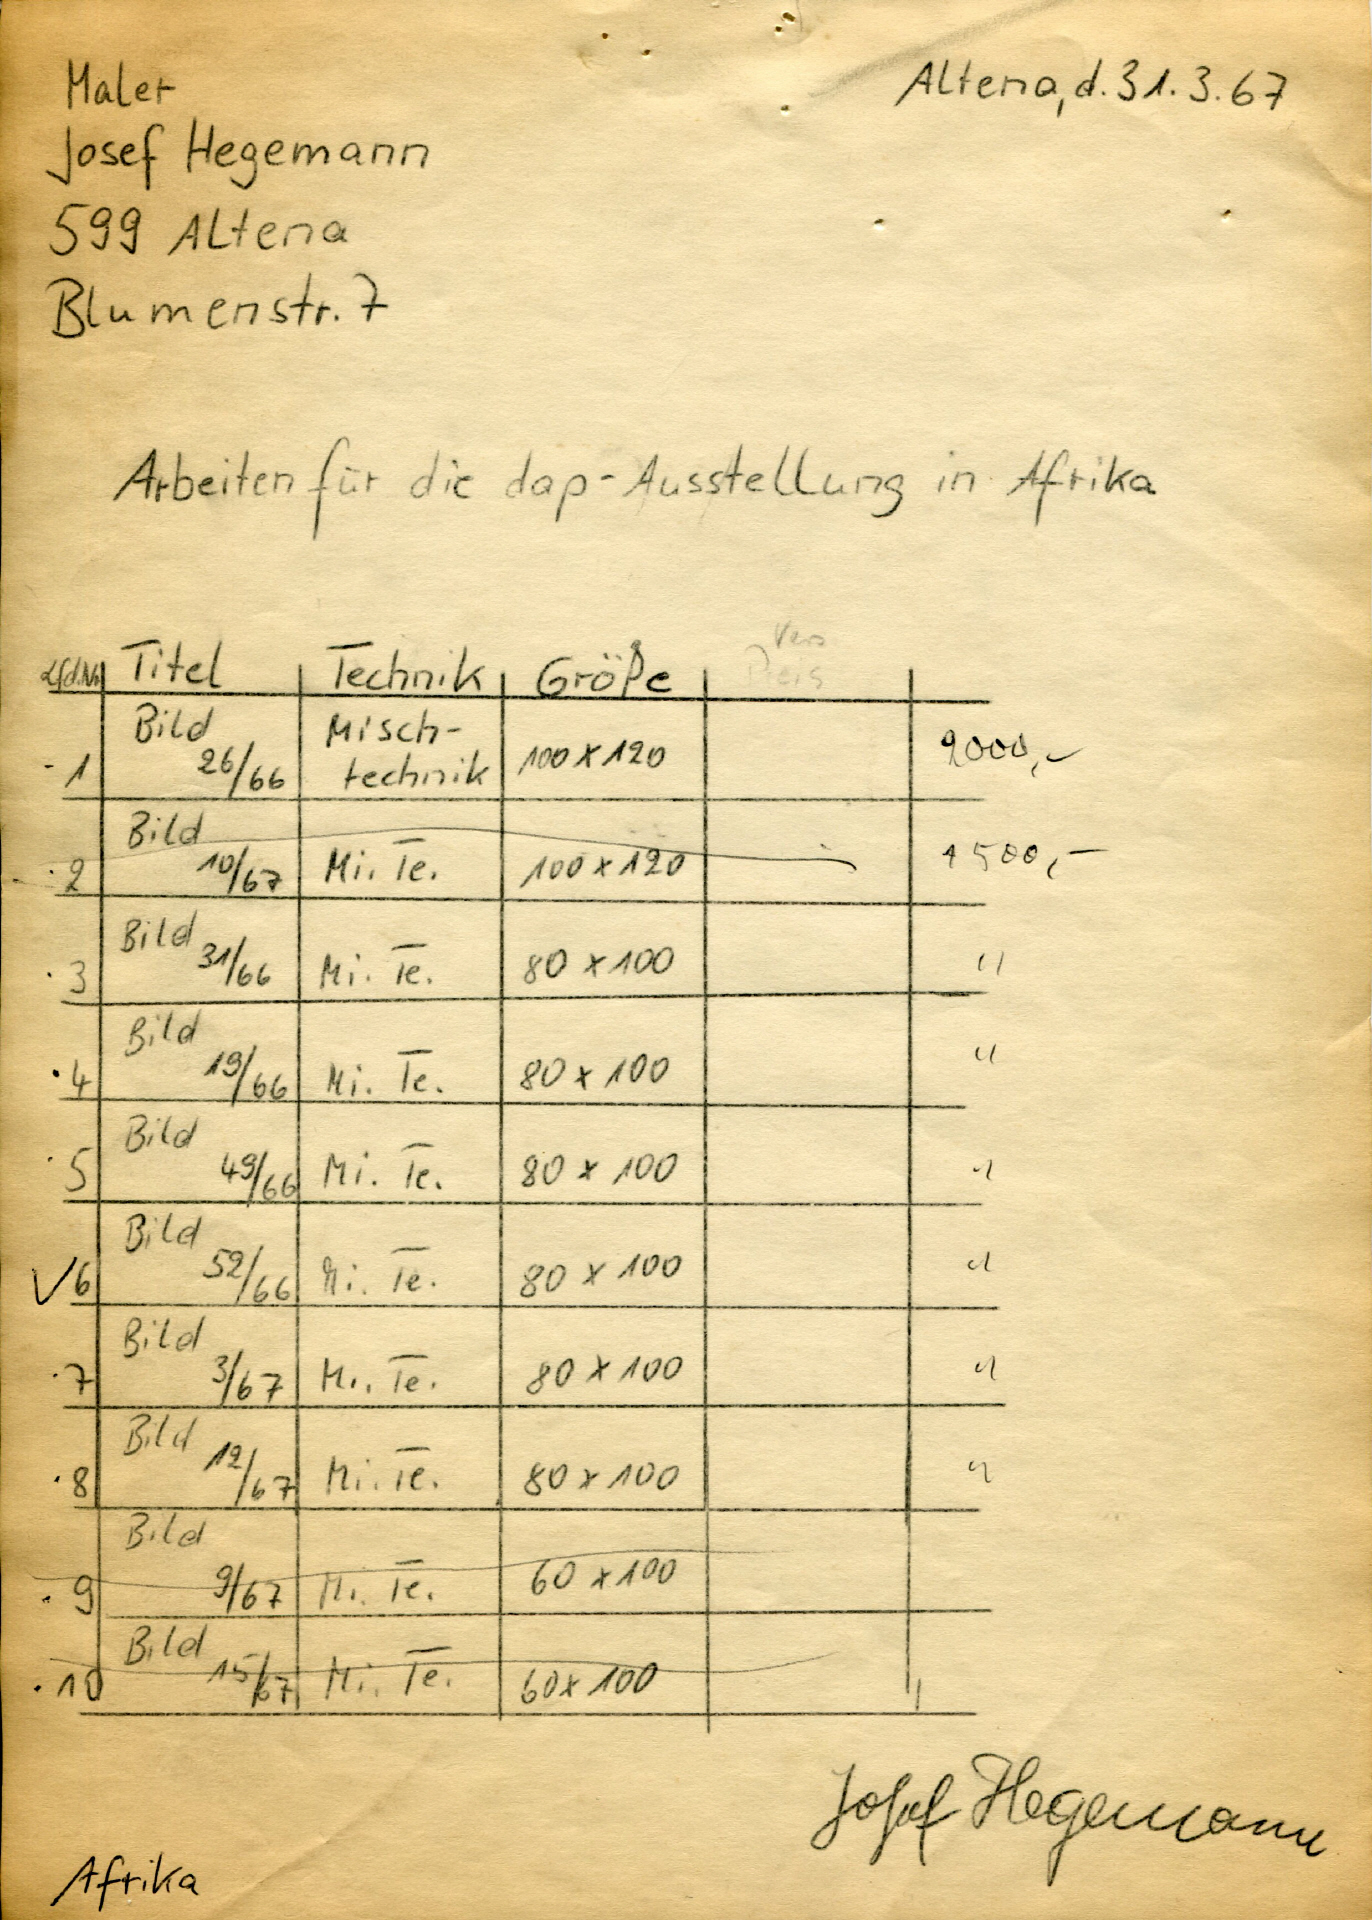 Maler
Altena, d. 31.3.67
Josef Hegemann
599 Altena
Blumenstr. 7
Arbeiten für die dap-Ausstellung in Afrika
Vers
Lfd.Nr. Titel Technik Größe Preis
1 Bild 26/66 Misch-
technik 100 x 120 2000,-
2 Bild 10/67 Mi. Te. 100 x 120 1500,-
3 Bild 31/66 Mi. Te. 80 x 100 "
4 Bild 19/66 Mi. Te. 80 x 100 "
5 Bild 49/66 Mi. Te. 80 x 100 "
6 Bild 52/66 Mi. Te. 80 x 100 "
7 Bild 3/67 Mi. Te. 80 x 100 "
8 Bild 12/67 Mi. Te. 80 x 100 "
9 Bild 9/67 Mi. Te. 60 x 100
10 Bild 15/67 Mi. Te. 60 x 100
Josef Hegemann
Afrika